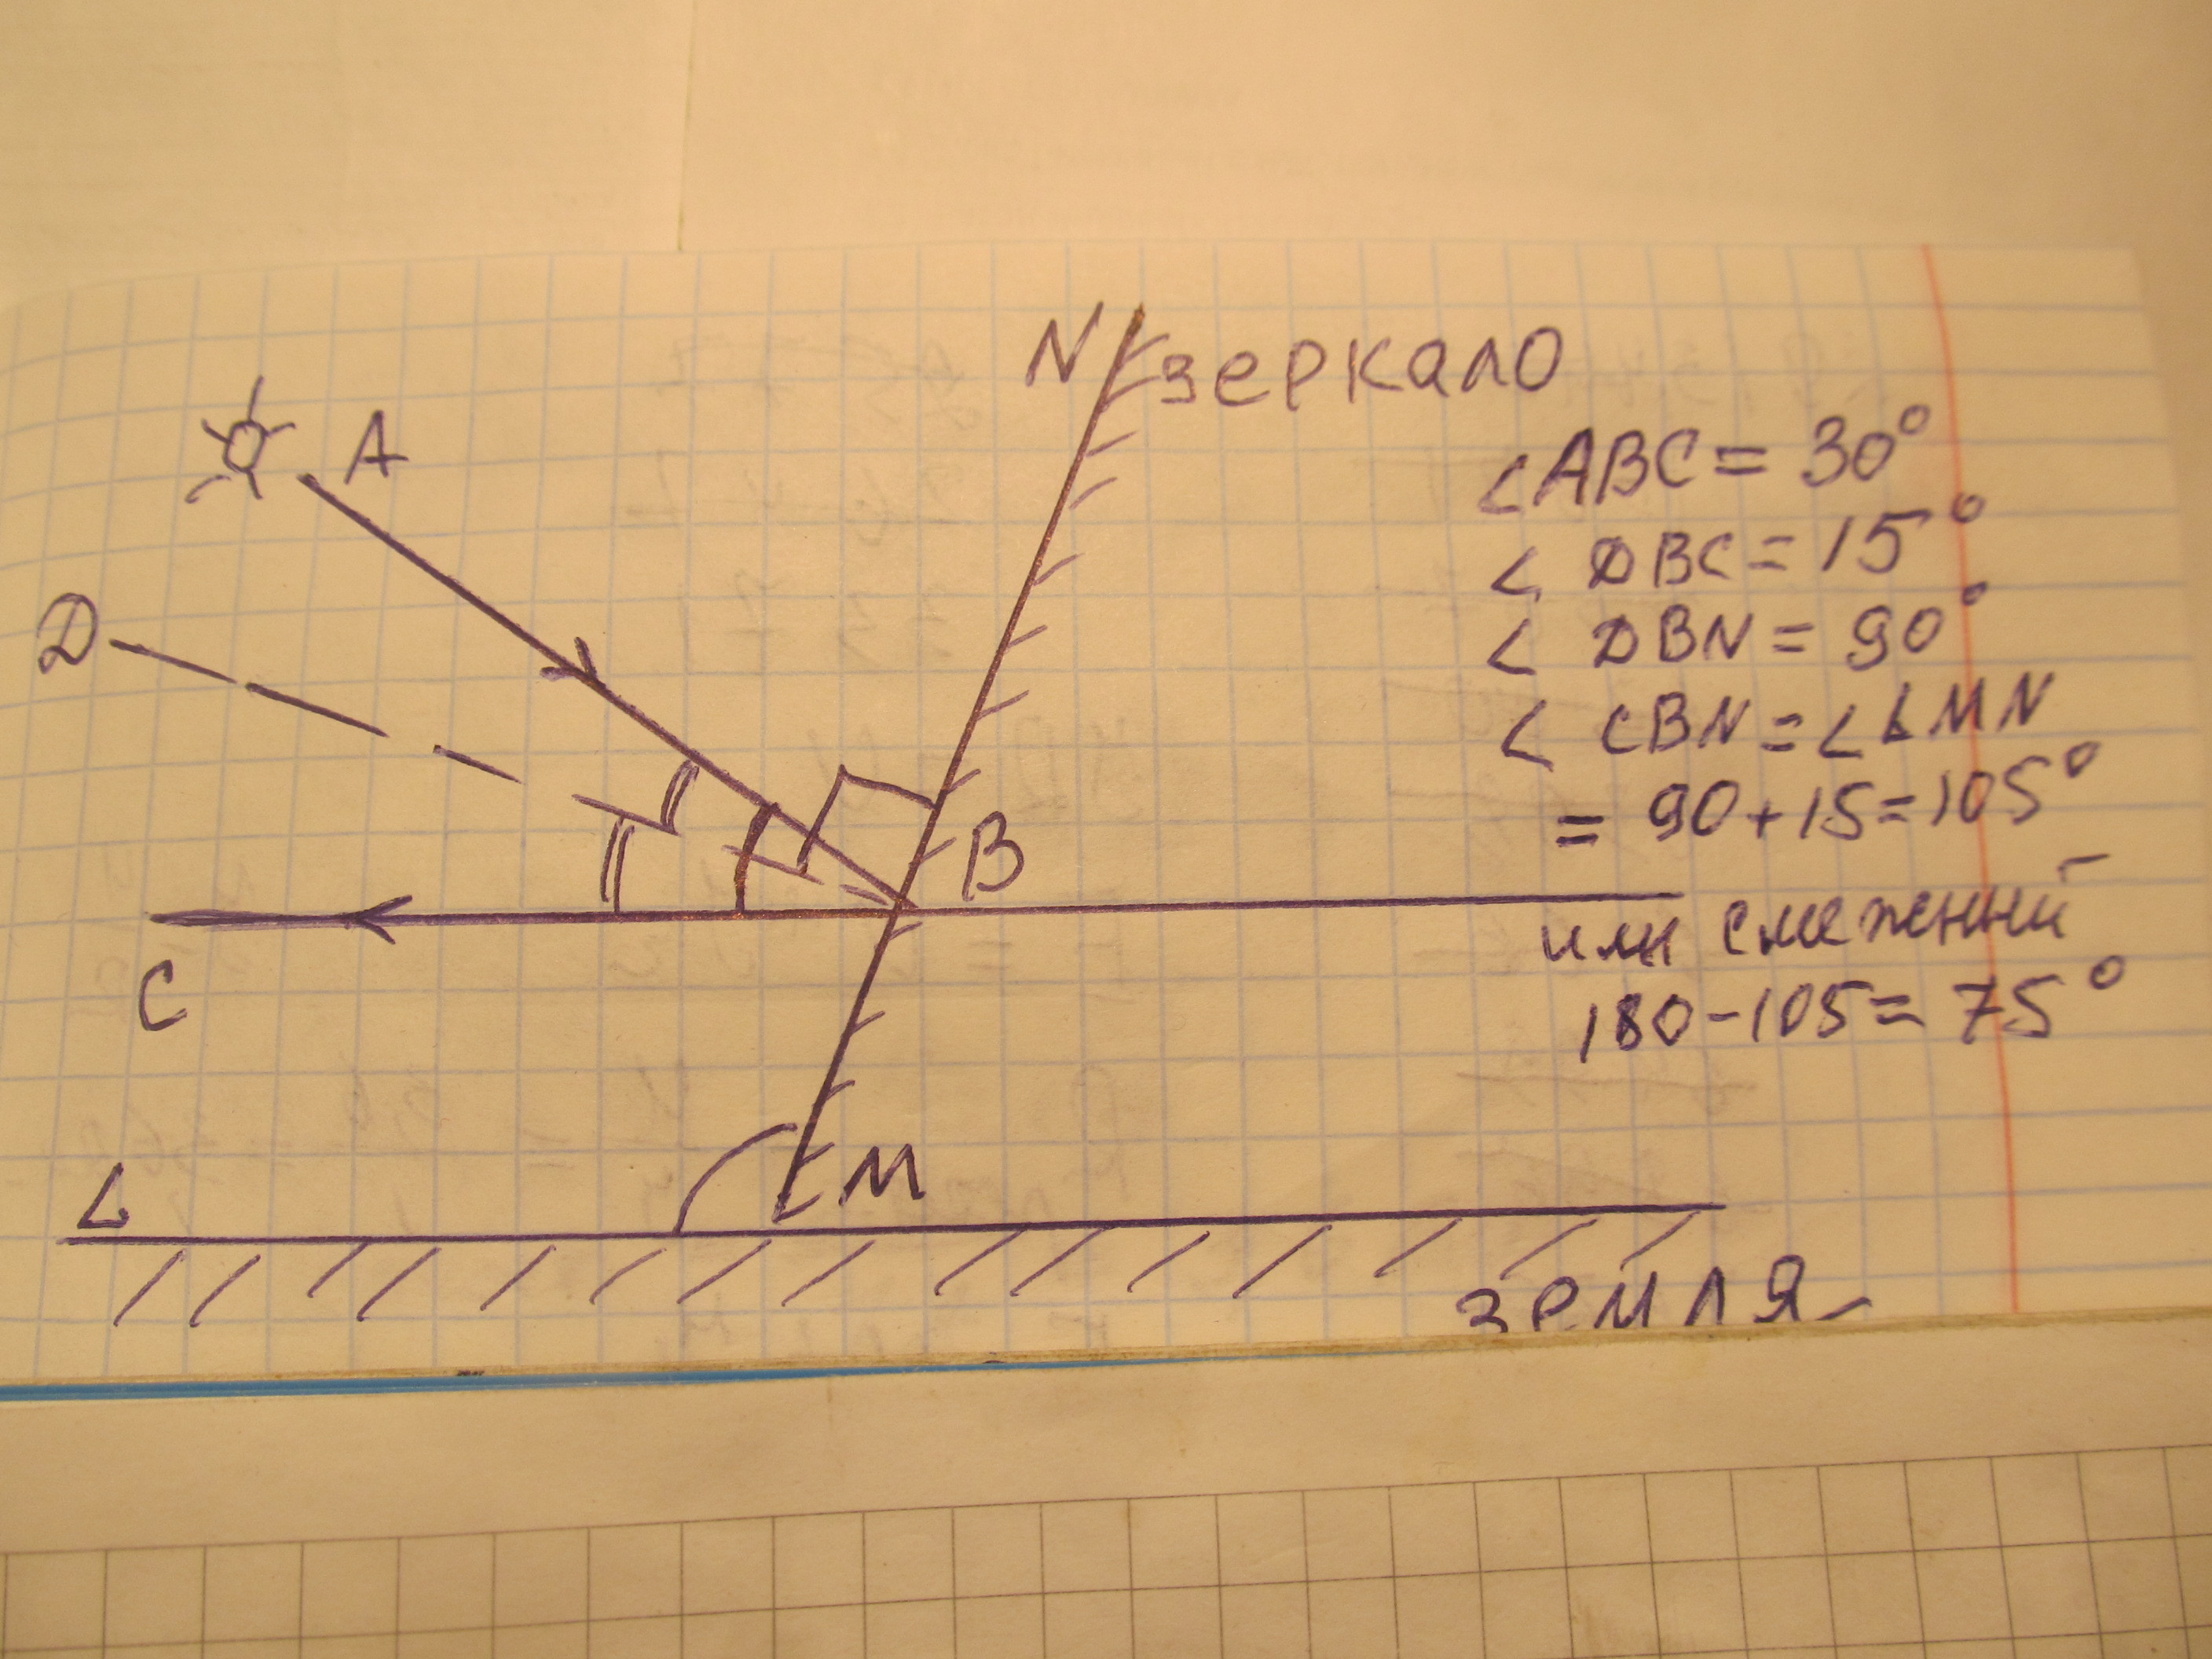 N зеркало
A
∠ABC = 30°
D
∠ DBC = 15°
∠ DBN = 90°
∠ CBN = ∠LMN
= 90+15=105°
B
или смежный
C
180-105= 75°
M
L
земля